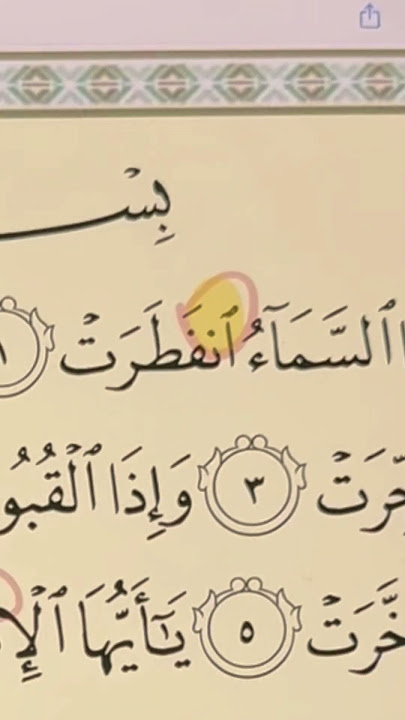 بِسْـ
ٱلسَّمَآءُ ٱنفَطَرَتْ ١
ـِّرَتْ ٣ وَإِذَا ٱلْقُبُو
خَّرَتْ ٥ يَـٰٓأَيُّهَا ٱلْإِ